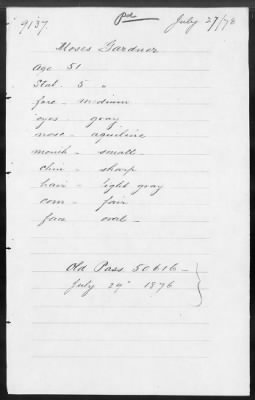 9137.
pd
July 27/78
Moses Gardner
Age 51
Stat. 5 "
fore - medium
eyes - gray
nose - aquiline
mouth - small -
chin - sharp
hair - light gray
com - fair
face oval -
Old Pass 50616 -
July 29" 1876